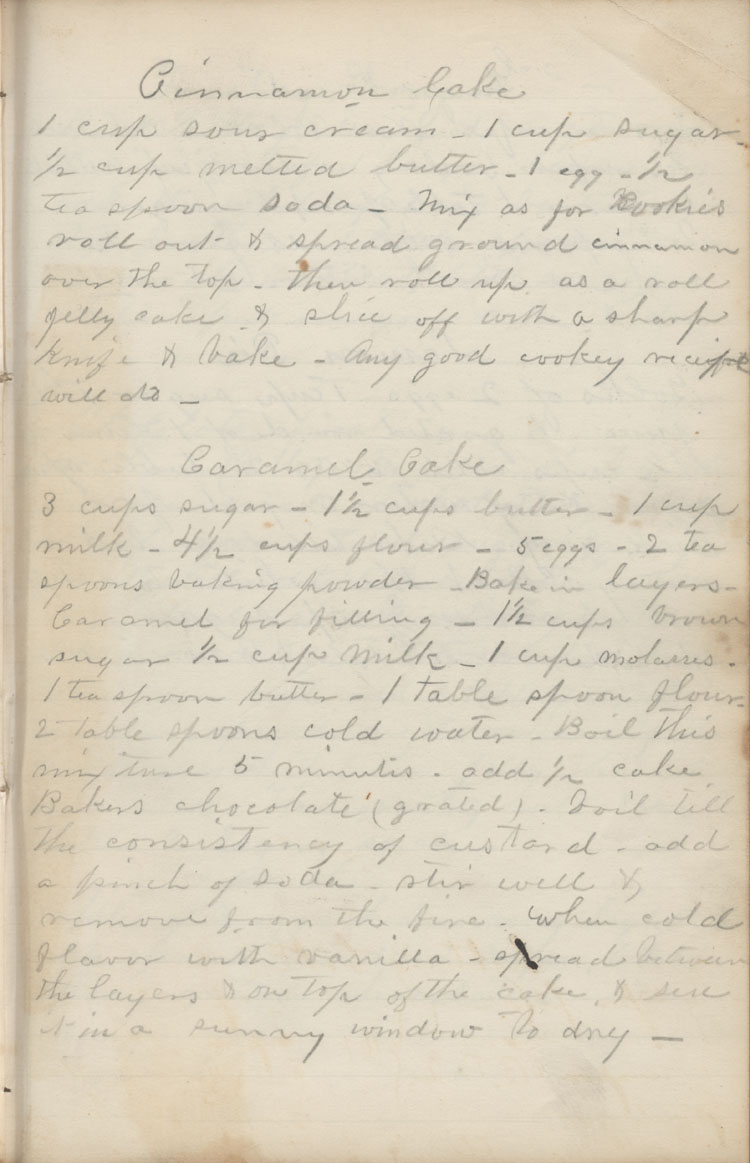 Cinnamon Cake
1 cup sour cream - 1 cup sugar -
1/2 cup melted butter - 1 egg - 1/2
tea spoon soda - Mix as for Kookies
roll out & spread ground cinnamon
over the top - then roll up as a roll
jelly cake & slice off with a sharp
Knife & bake - Any good cookey recipe
will do -
Caramel Cake
3 cups sugar - 1 1/2 cups butter - 1 cup
milk - 4 1/2 cups flour - 5 eggs - 2 tea
spoons baking powder - Bake in layers -
Caramel for filling - 1 1/2 cups brown
sugar 1/2 cup milk - 1 cup molasses -
1 tea spoon butter - 1 table spoon flour -
2 table spoons cold water - Boil this
mixture 5 minutes - add 1/2 cake
Bakers chocolate (grated) - boil till
the consistency of custard - add
a pinch of soda - stir well &
remove from the fire - when cold
flavor with vanilla - spread between
the layers & on top of the cake, &
it in a sunny window to dry -